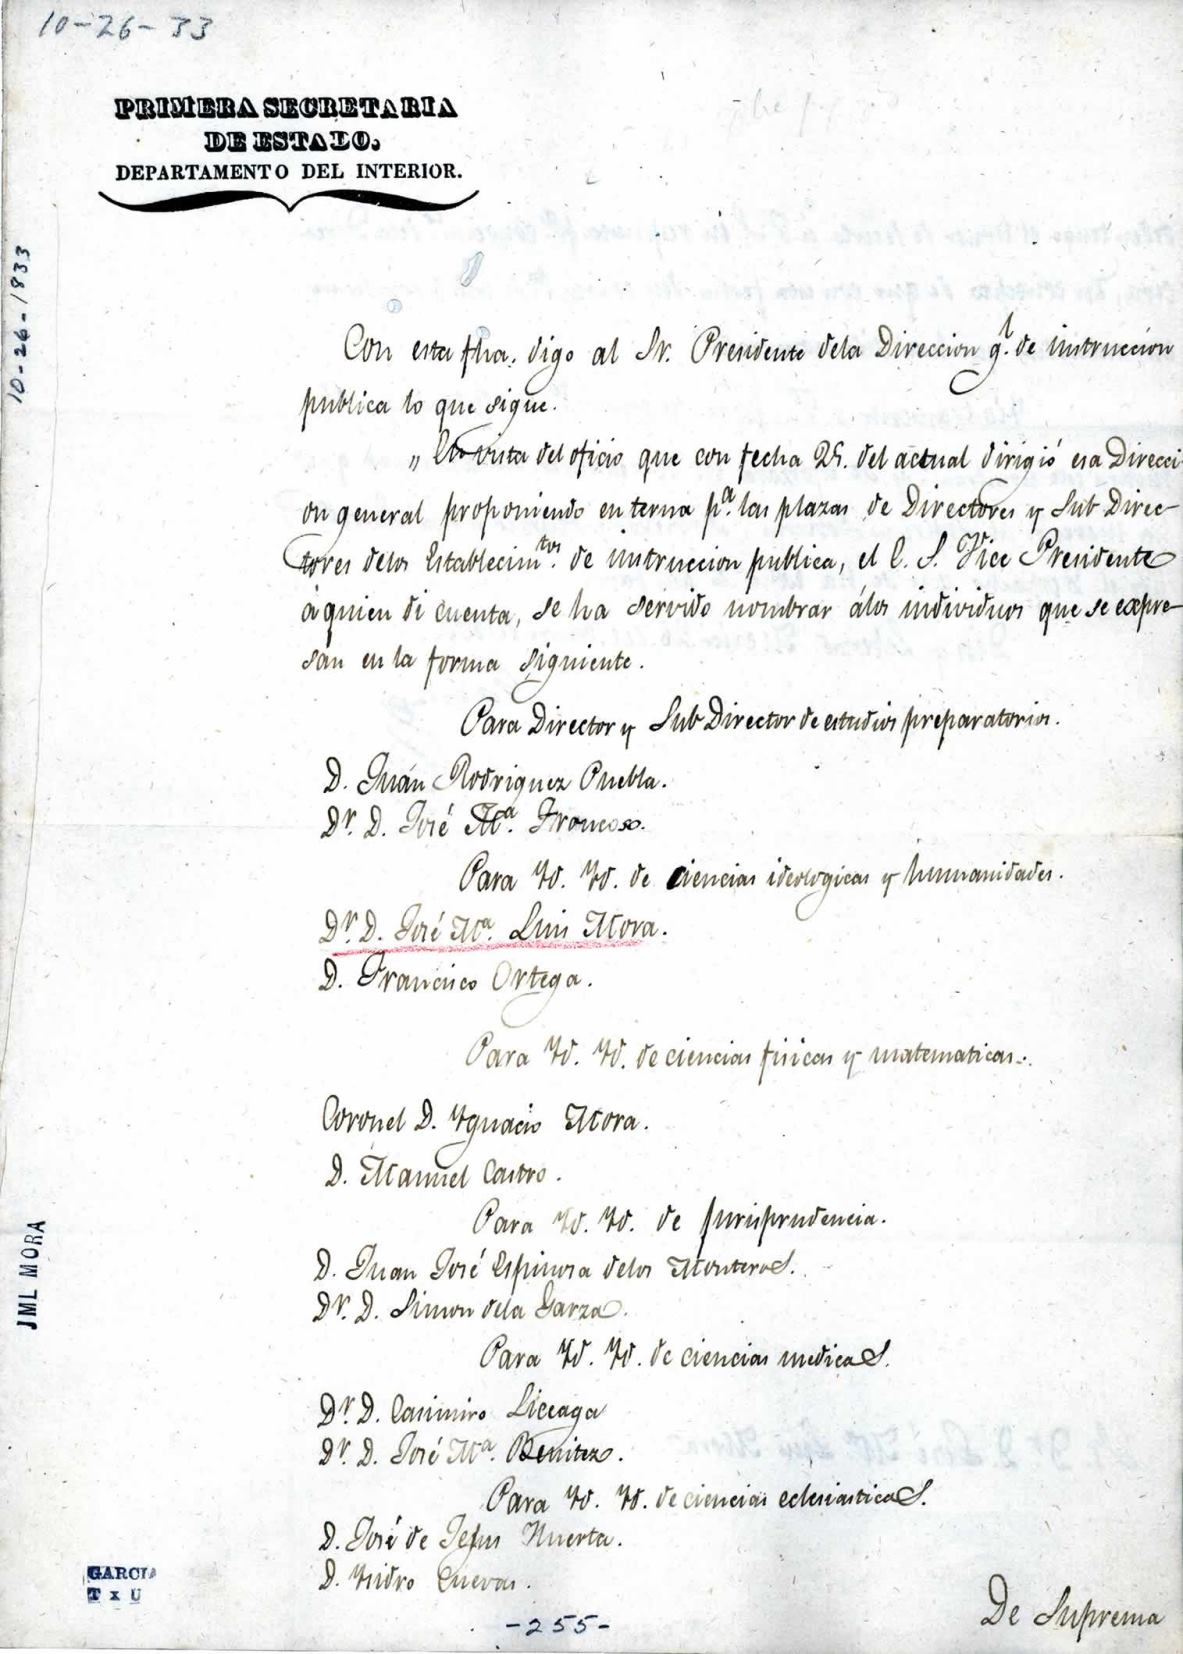 10-26-33
PRIMERA SECRETARIA
DE ESTADO.
DEPARTAMENTO DEL INTERIOR.
10-26-1833
Con esta fha. digo al Sr. Presidente dela Direccion gl. de instruccion
publica lo que sigue.
„ En vista del oficio que con fecha 25. del actual dirigió esa Direcci-
on general proponiendo en terna pa. las plazas de Directores y Sub Direc-
tores delos Establecimtos. de instruccion publica, el E. S. Vice Presidente
á quien di cuenta, se ha servido nombrar álos individuos que se expre-
san en la forma siguiente.
Para Director y Sub Director de estudios preparatorios.
D. Juan Rodriguez Puebla.
Dr. D. José Ma. Franco.
Para Yd. Yd. de ciencias ideologicas y humanidades.
Dr. D. José Ma. Luis Mora.
D. Francisco Ortega.
Para Yd. Yd. de ciencias fisicas y matematicas.
Coronel D. Ygnacio Mora.
D. Manuel Castro.
Para Yd. Yd. de Jurisprudencia.
D. Juan José Espinosa delos Monteros.
Dr. D. Simon dela Garza.
Para Yd. Yd. de ciencias medicas.
Dr. D. Casimiro Liceaga
Dr. D. José Ma. Benitez.
Para Yd. Yd. de ciencias eclesiasticas.
D. José de Jesus Huerta.
D. Ysidro Cuevas.
De Suprema
JML MORA
GARCIA
T x U
-255-